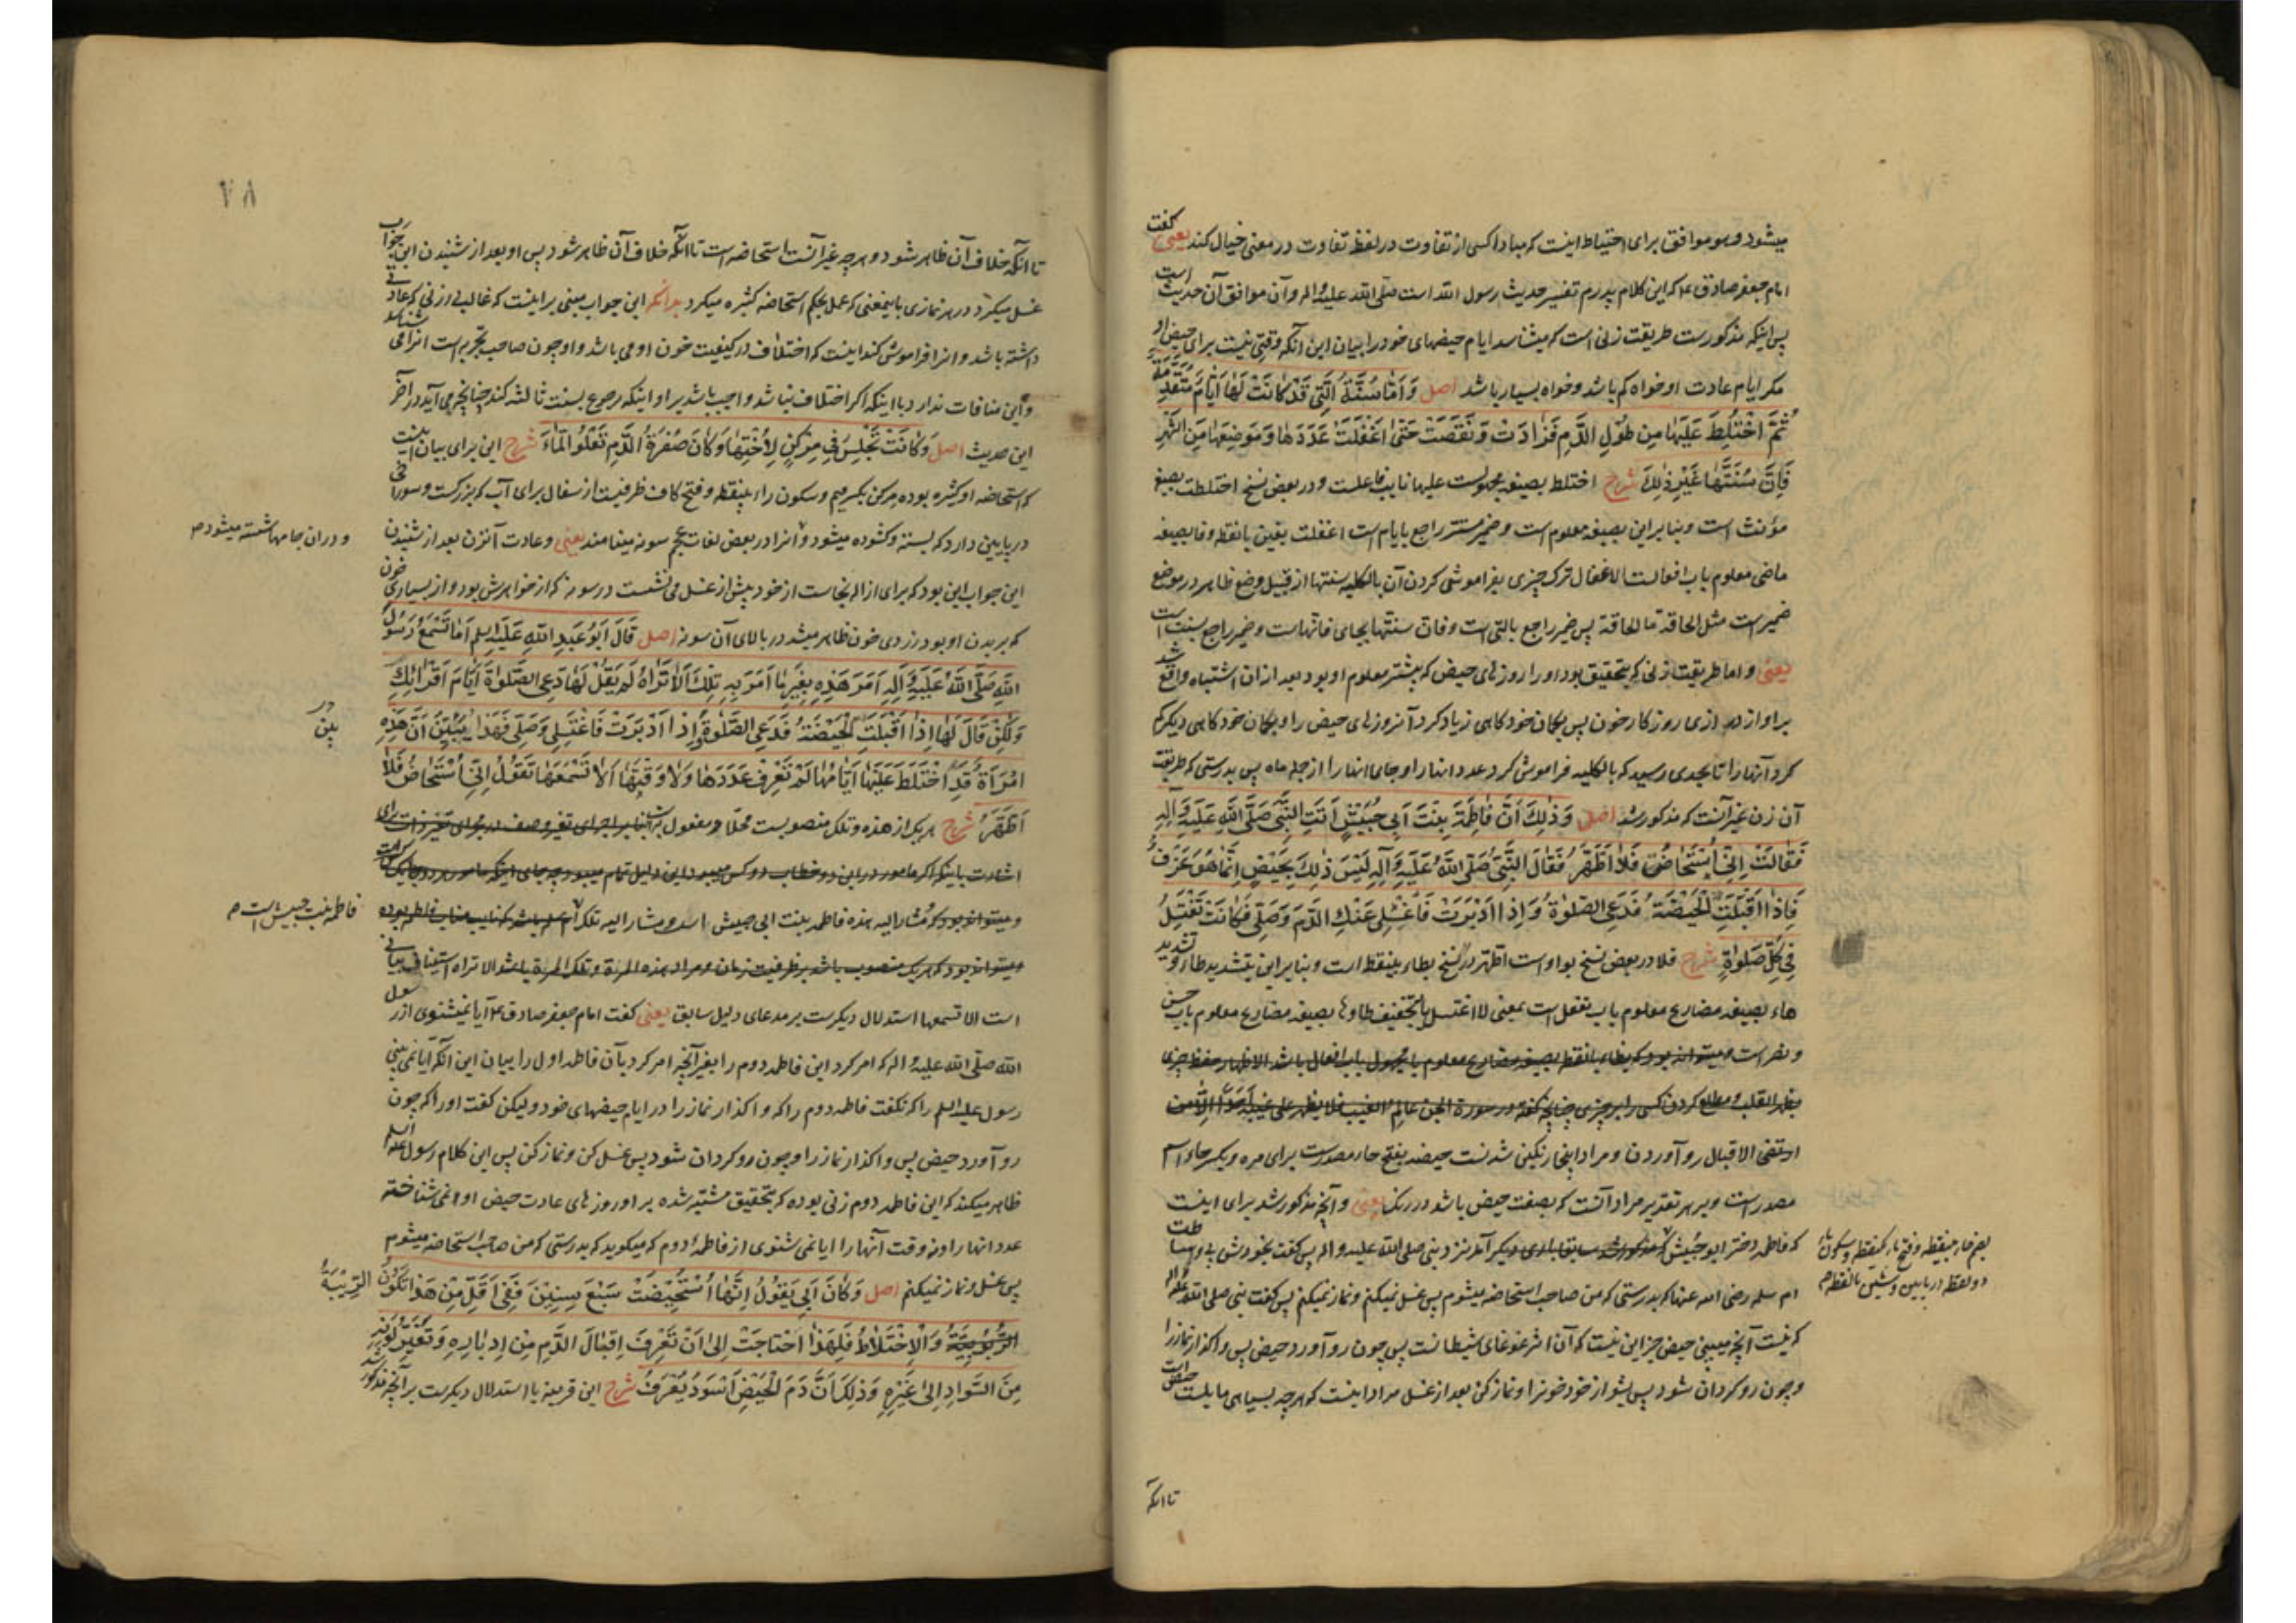 میشود و هو موافق برای احتیاط اینست که مبادا کسی از تفاوت در لفظ تفاوت در معنی خیال کند یعنی گفت
امام جعفر صادق ع که این کلام پدرم تفسیر حدیث رسول الله است صلی الله علیه و اله و آن موافق آن حدیث است
پس اینکه مذکور است طریقت زنی است که میشناسد ایام حیضهای خود را بیان این آنکه وقتی نیست برای حیض او
مکر ایام عادت او خواه کم باشد و خواه بسیار باشد اصل وَ اَمّا سُنَّةُ الَّتی قَدْ کانَتْ لَها اَیّامٌ مُتَقَدِّمَةٌ
ثُمَّ اخْتُلِطَ عَلَیْها مِن طُوْلِ الدَّمِ فَزادَتْ وَ نَقَصَتْ حَتّی اَغْفَلَتْ عَدَدَها وَ مَوضِعَها مِنَ الشَّهْرِ
فَاِنَّ سُنَّتَها غَیْرُ ذلِکَ شرح اختلط بصیغه مجهولست علیها نایب فاعلست و در بعض نسخ اختلطت بصیغه
مؤنث است و بنا براین بصیغه معلوم است و ضمیر مستتر راجع بایام است اغفلت بغین بانقطه و فا بصیغه
ماضی معلوم باب افعالست الاغفال ترک چیزی بفراموشی کردن آن بالکلیه سنتها از قبیل وضع ظاهر در موضع
ضمیر است مثل الحاقة ما الحاقة پس ضمیر راجع بالتی است و فان سنتها بجای فانهاست و ضمیر راجع بسنت است
یعنی و اما طریقت زنی که بتحقیق بود او را روز های حیض که پیشتر معلوم او بود بعد ازان اشتباه واقع شد
بر او از درازی روزکار خون پس بکمان خود کاهی زیاد کرد آنروز های حیض را و بکمان خود کاهی دیکر کم
کرد آنها را تا بحدی رسید که بالکلیه فراموش کرد عدد انها را و جای انها را از جمله ماه پس بدرستی که طریقت
آن زن غیر آنست که مذکور شد اصل وَ ذلِکَ اَنَّ فاطِمَةَ بِنْتَ اَبی حُبَیْشٍ اَتَتِ النَّبیَّ صَلَّی اللّهُ عَلَیْهِ وَ آلِهِ
فَقالَتْ اِنّی اُسْتَحاضُ فَلا اَطْهُرُ فَقالَ النَّبیُّ صَلَّی اللّهُ عَلَیْهِ وَ آلِهِ لَیْسَ ذلِکَ بِحَیْضٍ اِنَّما هُوَ عَزْفٌ
فَاِذا اَقْبَلَتِ الْحَیْضَةُ فَدَعِی الصَّلوةَ وَ اِذا اَدْبَرَتْ فَاغْسِلی عَنْکِ الدَّمَ وَ صَلّی فَکانَتْ تَغْتَسِلُ
فی کُلِّ صَلوةٍ شرح فلا در بعض نسخ بواو است اطهر در نسخ بطاء بینقطه است و بنا براین بتشدید طاء و تشدید
هاء بصیغه مضارع معلوم باب تفعل است بمعنی لا اغتسل یا بتخفیف طا و ها بصیغه مضارع معلوم باب حسن
و نصر است و میتواند بود که بظاء بانقطه بصیغه مضارع معلوم یا مجهول باب افعال باشد الاظهار حفظ چیزی
بظهر القلب و مطلع کردن کسی را بر چیزی چنانچه گفته در سورة الجن عالم الغیب فلا یظهر علی غیبه احدا الا من
ارتضی الاقبال رو آوردن و مراد اینجا رنکین شدنست حیضه بفتح حاء مصدرست برای مره و بکسر حاء اسم
مصدر است و بر هر تقدیر مراد آنست که بصفت حیض باشد در رنک یعنی و آنچه مذکور شد برای اینست
که فاطمه دختر ابو حبیش آمد نزد نبی صلی الله علیه و اله پس گفت
بضم حاء بینقطه و فتح باء یکنقطه و سکون یاء
دو نقطه در پایین و شین بانقطه
ام سلمه رضی الله عنها که بدرستی که من صاحب استحاضه میشوم پس غسل نمیکنم و نماز نمیکنم پس گفت نبی صلی الله علیه و اله
که نیست آنچه میبینی حیض جز این نیست که آن اثر غوغای شیطانست پس چون رو آورد حیض پس واکذار نماز را
و چون روکردان شود پس بشو از خود خونرا و نماز کن بعد از غسل مراد اینست که هرچه بسیاهی مایلست حیض است
تا آنکه
٧٨
تا آنکه خلاف آن ظاهر شود و هرچه غیر آنست استحاضه است تا آنکه خلاف آن ظاهر شود پس او بعد از شنیدن این جواب
غسل میکرد در هر نمازی باینمعنی که عمل بحکم استحاضه کثیره میکرد بدانکه این جواب مبنی براینست که غالب در زنی که عادتی
داشته باشد و انرا فراموش کند اینست که اختلاف در کیفیت خون او می باشد و او چون صاحب تجربه است انرا می شناسد
و این منافات ندارد با اینکه اکر اختلاف نباشد واجب باشد بر او اینکه رجوع بسنت ثالثه کند چنانچه می آید در آخر
این حدیث اصل وَ کانَتْ تَجْلِسُ فی مِرْکَنٍ لِاُخْتِها وَ کانَ صُفْرَةُ الدَّمِ تَعْلُو الْماءَ شرح این برای بیان اینست
که استحاضه او کثیره بوده مرکن بکسر میم و سکون راء بینقطه و فتح کاف ظرفیست از سفال برای آب که بزرکست و سوراخی
در پایین دارد که بسته و کشوده میشود و انرا در بعض لغات عجم سونه مینامند یعنی و عادت آنزن بعد از شنیدن
و دران جامها شسته میشود
این جواب این بود که برای ازاله نجاست از خود پیش از غسل می نشست در سونه که از خواهرش بود و از بسیاری خون
که بر بدن او بود زردی خون ظاهر میشد در بالای آن سونه اصل قالَ اَبُو عَبْدِ اللّهِ عَلَیْهِ السلم اَما تَسْمَعُ رَسُولَ
اللّهِ صَلَّی اللّهُ عَلَیْهِ وَ آلِهِ اَمَرَ هذِهِ بِغَیْرِ ما اَمَرَ بِهِ تِلْکَ اَلا تَراهُ لَمْ یَقُلْ لَها دَعِی الصَّلوةَ اَیّامَ اَقْرائِکِ
وَ لکِنْ قالَ لَها اِذا اَقْبَلَتِ الْحَیْضَةُ فَدَعِی الصَّلوةَ وَ اِذا اَدْبَرَتْ فَاغْتَسِلی وَ صَلّی فَهذا یُبَیِّنُ اَنَّ هذِهِ
امْرَأَةٌ قَدِ اخْتَلَطَ عَلَیْها اَیّامُها لَمْ تَعْرِفْ عَدَدَها وَ لا وَقْتَها اَلا تَسْمَعُها تَقُولُ اِنّی اُسْتَحاضُ فَلا
اَطْهُرُ شرح هر یک از هذه و تلک منصوبست محلّا و مفعول به
اشارت باینکه اکر مامور در این دو خطاب دو کس نمیبود این دلیل تمام نمیبود
و میتواند بود که مشار الیه هذه فاطمه بنت ابی حبیش است و مشار الیه تلک
فاطمه بنت حبیش است
میتواند بود که هر یک منصوب باشد بر ظرفیت زمان و مراد هذه المرة و تلک المرة باشد الا تراه استیناف بیانی
است الا تسمعها استدلال دیکرست بر مدعای دلیل سابق یعنی کفت امام جعفر صادق ع آیا نمیشنوی از رسول
الله صلی الله علیه و اله که امر کرد این فاطمه دوم را بغیر آنچه امر کرد بآن فاطمه اول را بیان این آنکه آیا نمی بینی
رسول علیه السلم را که نکفت فاطمه دوم را که واکذار نماز را در ایام حیضهای خود ولیکن کفت او را که چون
رو آورد حیض پس واکذار نماز را و چون روکردان شود پس غسل کن و نماز کن پس این کلام رسول علیه السلم
ظاهر میکند که این فاطمه دوم زنی بوده که بتحقیق مشتبه شده بر او روز های عادت حیض او نمی شناخته
عدد انها را و نه وقت آنها را ایا نمی شنوی از فاطمهٔ دوم که میکوید که بدرستی که من صاحب استحاضه میشوم
پس غسل و نماز نمیکنم اصل وَ کانَ اَبی یَقُولُ اِنَّها اسْتُحیضَتْ سَبْعَ سِنینَ فَفی اَقَلَّ مِنْ هذا تَکُونُ الرّیبَةُ
وَ الْاِخْتِلاطُ فَلِهذا احْتاجَتْ اِلی اَنْ تَعْرِفَ اِقْبالَ الدَّمِ مِنْ اِدْبارِهِ وَ تَغَیُّرَ لَوْنِهِ
مِنَ السَّوادِ اِلی غَیْرِهِ وَ ذلِکَ اَنَّ دَمَ الْحَیْضِ اَسْوَدُ یُعْرَفُ شرح این قرینه یا استدلال دیکرست بر آنچه مذکور شد